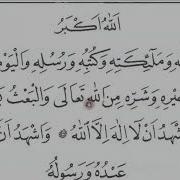 اَللّٰهُ اَكْبَرُ
ـهِ وَمَلٰٓئِكَتِهِ وَكُتُبِهِ وَرُسُلِهِ وَالْيَوْمِ
ـيْرِهِ وَشَرِّهِ مِنَ اللّٰهِ تَعَالٰى وَالْبَعْثُ بَـ
ـشْهَدُ اَنْ لَا اِلٰهَ اِلَّا اللّٰهُ وَاَشْهَدُ اَنَّ
عَبْدُهُ وَرَسُولُهُ